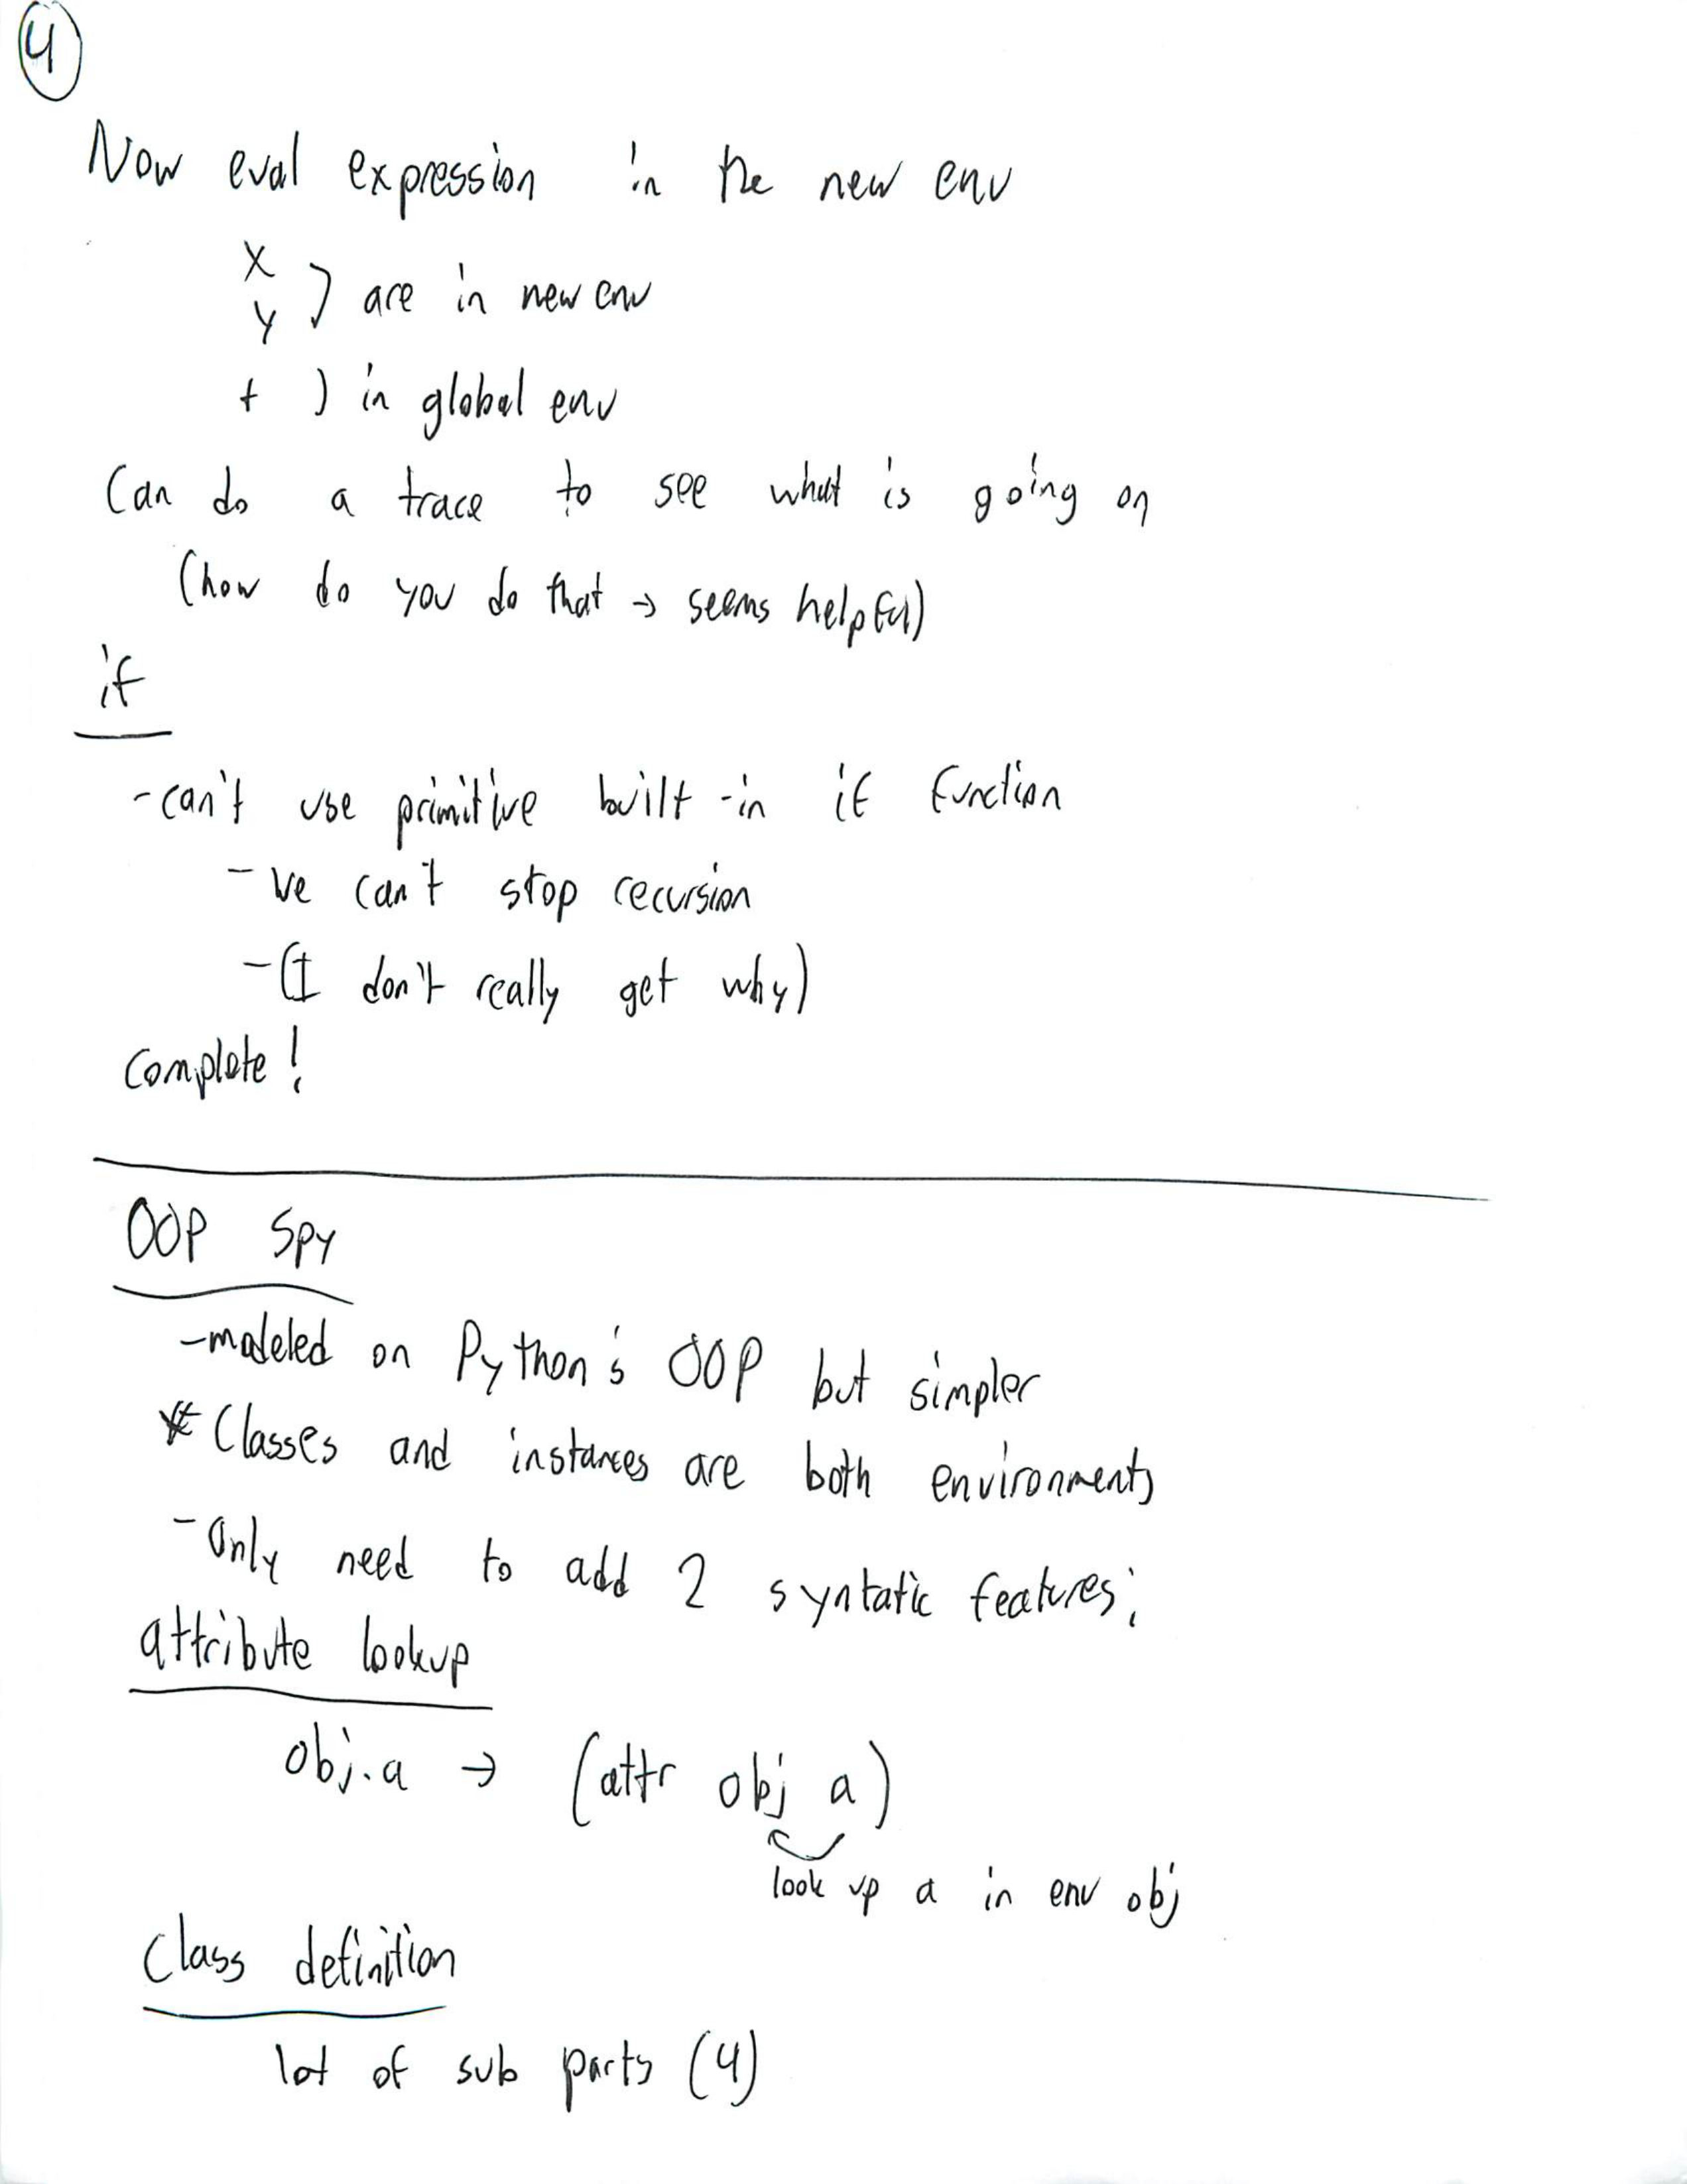 4
Now eval expression in the new env
x
y } are in new env
+ ) in global env
Can do a trace to see what is going on
(how do you do that → seems helpful)
if
- can't use primitive built-in if function
- We can't stop recursion
- (I don't really get why)
Complete!
OOP Spy
- modeled on Python's OOP but simpler
* Classes and instances are both environments
- Only need to add 2 syntatic features;
attribute lookup
obj.a → (attr obj a)
look up a in env obj
Class definition
lot of sub parts (4)